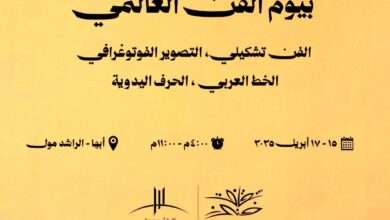 بيوم الفن العالمي
الفن تشكيلي، التصوير الفوتوغرافي
الخط العربي ، الحرف اليدوية
١٥ - ١٧ أبريل ٢٠٢٥
٤:٠٠م - ١١:٠٠م
أبها - الراشد مول